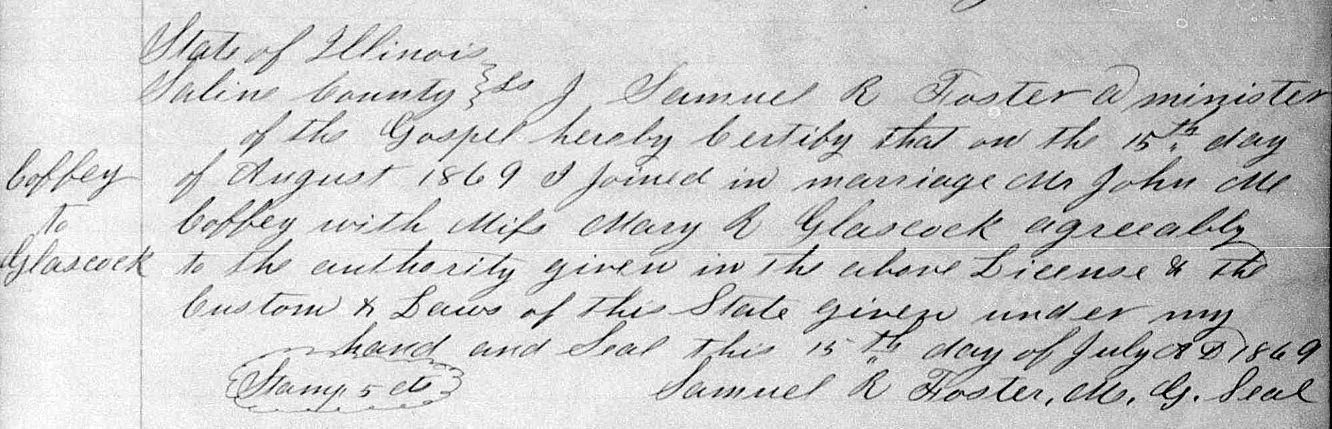 State of Illinois
Saline County } ss I, Samuel R Foster a minister
of the Gospel hereby Certify that on the 15th day
Coffey
to
Glascock
of August 1869 I joined in marriage Mr John M
Coffey with Miss Mary R Glascock agreeably
to the authority given in the above License & the
Custom & Laws of this State given under my
hand and Seal this 15th day of July A D 1869
Stamp 5 cts
Samuel R Foster, M. G. Seal